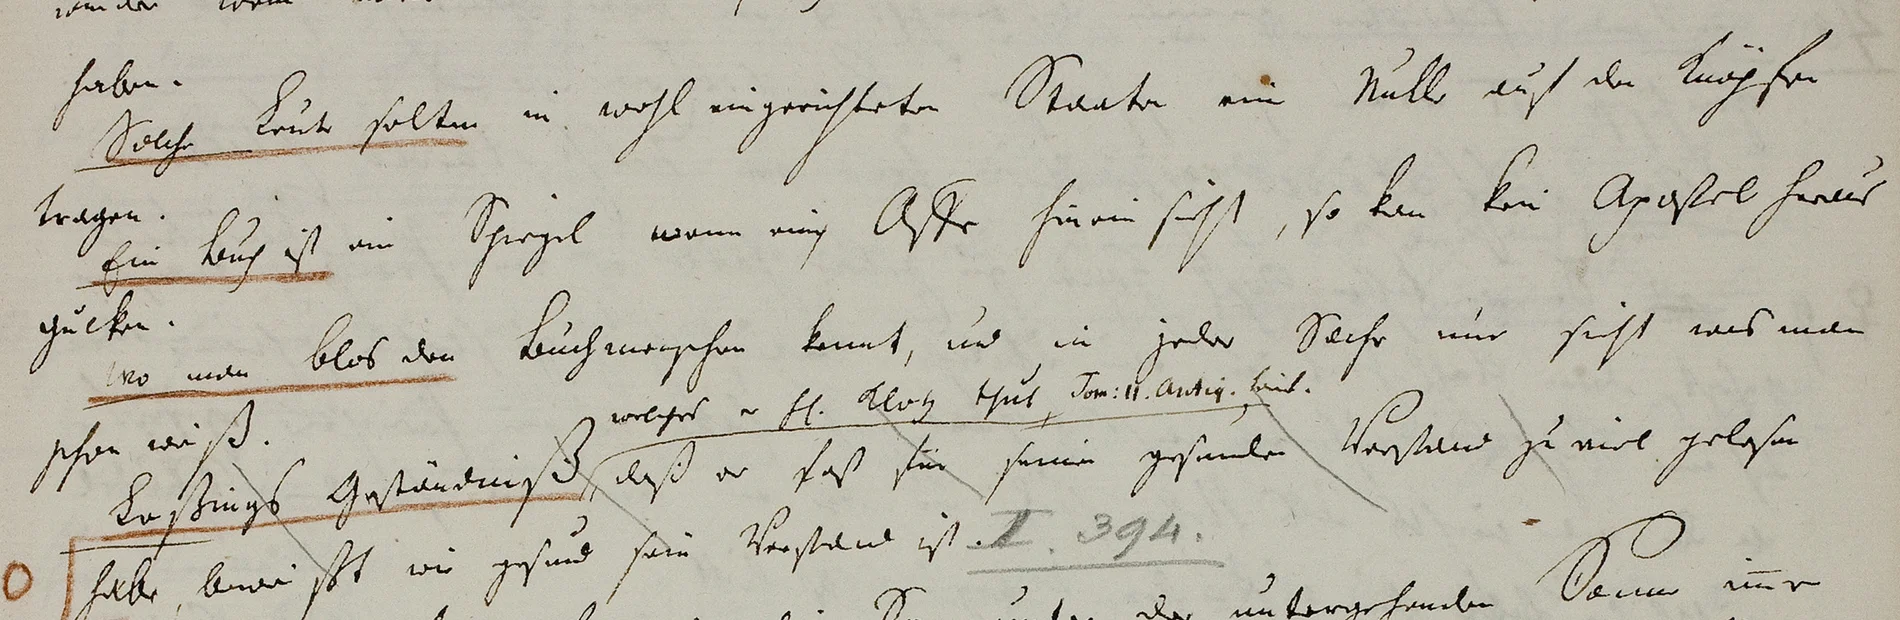 haben.
Solche Leute solten in wohl eingerichteten Staaten ein Nulle auf den Knöpfen
tragen.
Ein Buch ist ein Spiegel wenn ein Affe hinein sieht, so kan kein Apostel heraus
gucken.
Wo man blos den Buchmenschen kennt, und in jeder Sache nur sieht was man
schon weiß.
welches er H. Klotz thut, Tom: II. Antiq. Briefe.
Leßings Geständniß, daß er fast für seinen gesunden Verstand zu viel gelesen
habe, beweißt wie gesund sein Verstand ist. II. 394.
der untergehenden Sonne